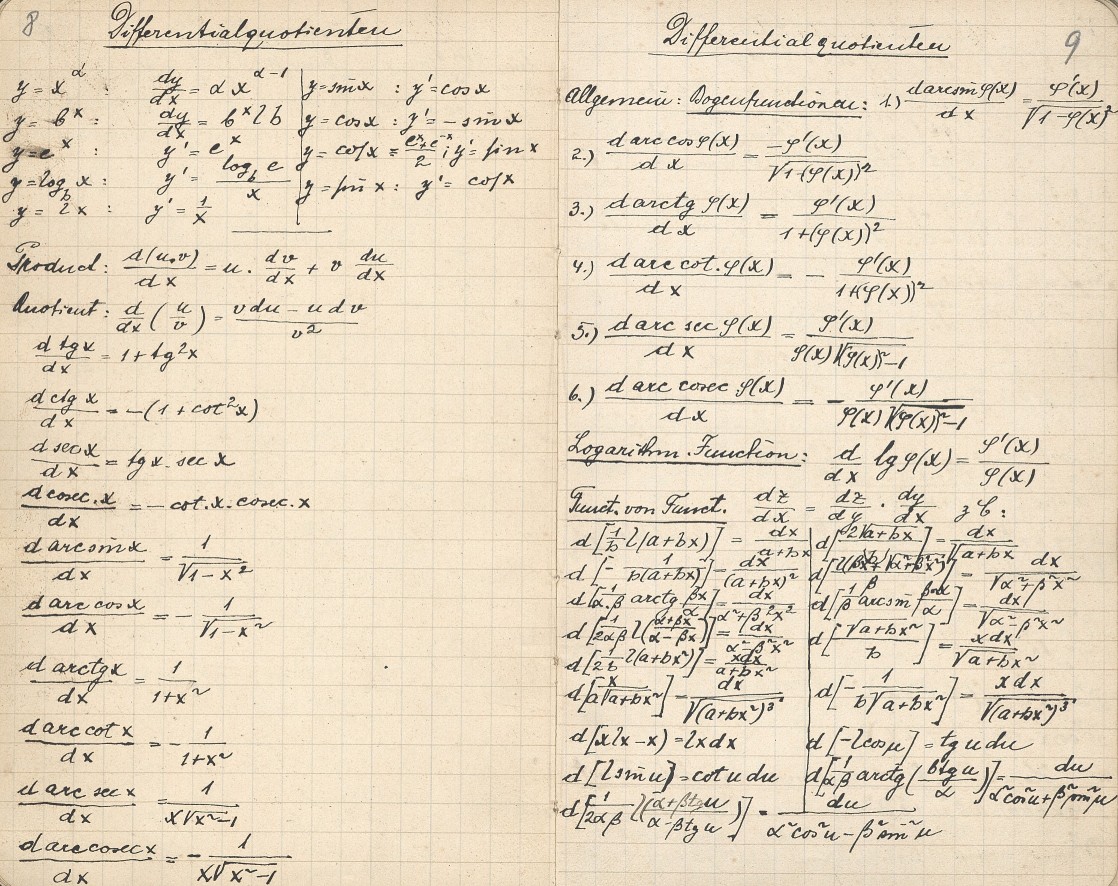 8
Differentialquotienten
y = x^α : dy/dx = α x^(α-1) | y = sin x : y' = cos x
y = b^x : dy/dx = b^x l b | y = cos x : y' = - sin x
y = e^x : y' = e^x | y = cos x = (e^x + e^-x)/2 ; y' = sin x
y = log_b x : y' = log_b e / x | y = sin x : y' = cos x
y = l x : y' = 1/x
Product : d(u.v)/dx = u . dv/dx + v du/dx
Quotient : d/dx (u/v) = (v du - u dv)/v²
d tg x/dx = 1 + tg² x
d ctg x/dx = -(1 + cot² x)
d sec x/dx = tg x . sec x
d cosec . x/dx = - cot . x . cosec . x
d arc sin x/dx = 1/√(1-x²)
d arc cos x/dx = - 1/√(1-x²)
d arctg x/dx = 1/(1+x²)
d arc cot x/dx = - 1/(1+x²)
d arc sec x/dx = 1/(x√(x²-1))
d arc cosec x/dx = - 1/(x√(x²-1))
Differentialquotienten
9
Allgemein : Bogenfunctionen : 1.) d arc sin φ(x)/dx = φ'(x)/√(1-φ(x)²)
2.) d arc cos φ(x)/dx = -φ'(x)/√(1-(φ(x))²)
3.) d arctg φ(x)/dx = φ'(x)/(1+(φ(x))²)
4.) d arc cot . φ(x)/dx = - φ'(x)/(1+(φ(x))²)
5.) d arc sec φ(x)/dx = φ'(x)/(φ(x)√((φ(x))²-1))
6.) d arc cosec φ(x)/dx = - φ'(x)/(φ(x)√((φ(x))²-1))
Logarithm. Function : d/dx lg φ(x) = φ'(x)/φ(x)
Funct. von Funct. dz/dx = dz/dy . dy/dx z b :
d[1/b l(a+bx)] = dx/(a+bx) | d[2√(a+bx)/b] = dx/√(a+bx)
d[- 1/(b(a+bx))] = dx/(a+bx)² | d[l(βx+√(α²+β²x²))/β] = dx/√(α²+β²x²)
d[1/(α.β) arctg βx/α] = dx/(α²+β²x²) | d[1/β arc sin βx/α] = dx/√(α²-β²x²)
d[1/(2αβ) l((α+βx)/(α-βx))] = dx/(α²-β²x²) | d[√(a+bx²)/b] = x dx/√(a+bx²)
d[1/(2b) l(a+bx²)] = x dx/(a+bx²)
d[x/(a√(a+bx²))] = dx/√((a+bx²)³) | d[- 1/(b√(a+bx²))] = x dx/√((a+bx²)³)
d[x l x - x] = l x dx | d[- l cos u] = tg u du
d[l sin u] = cot u du | d[1/(αβ) arctg(β tg u/α)] = du/(α² cos² u + β² sin² u)
d[1/(2αβ) l((α+β tg u)/(α-β tg u))] = du/(α² cos² u - β² sin² u)